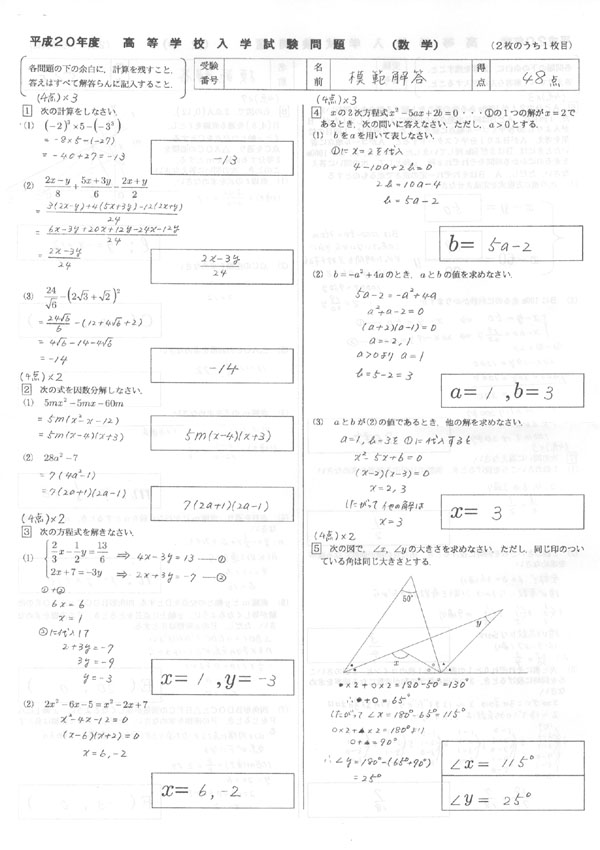 平成20年度 高等学校入学試験問題 (数学) (2枚のうち1枚目)
各問題の下の余白に, 計算を残すこと.
答えはすべて解答らんに記入すること.
受験番号
名前 模範解答
得点 48点
(4点)×3
1 次の計算をしなさい.
(1) (−2)³×5−(−3³)
= −8×5−(−27)
= −40+27 = −13
−13
(2) (2x−y)/8 + (5x+3y)/6 − (2x+y)/2
= (3(2x−y)+4(5x+3y)−12(2x+y))/24
= (6x−3y+20x+12y−24x−12y)/24
= (2x−3y)/24
(2x−3y)/24
(3) 24/√6 − (2√3+√2)²
= 24√6/6 − (12+4√6+2)
= 4√6−14−4√6
= −14
−14
(4点)×2
2 次の式を因数分解しなさい.
(1) 5mx²−5mx−60m
= 5m(x²−x−12)
= 5m(x−4)(x+3)
5m(x−4)(x+3)
(2) 28a²−7
= 7(4a²−1)
= 7(2a+1)(2a−1)
7(2a+1)(2a−1)
(4点)×2
3 次の方程式を解きなさい.
(1) { 2/3 x − 1/2 y = 13/6 ⇒ 4x−3y=13 —①
2x+7=−3y ⇒ 2x+3y=−7 —②
①+②
6x=6
x=1
②に代入して
2+3y=−7
3y=−9
y=−3
x= 1 , y= −3
(2) 2x²−6x−5=x²−2x+7
x²−4x−12=0
(x−6)(x+2)=0
x=6,−2
x= 6, −2
(4点)×3
4 xの2次方程式x²−5ax+2b=0・・・①の1つの解がx=2で
あるとき, 次の問いに答えなさい. ただし, a>0とする.
(1) bをaを用いて表しなさい.
①にx=2を代入
4−10a+2b=0
2b=10a−4
b=5a−2
b= 5a−2
(2) b=−a²+4aのとき, aとbの値を求めなさい.
5a−2=−a²+4a
a²+a−2=0
(a+2)(a−1)=0
a=−2,1
a>0より a=1
b=5−2=3
a= 1 , b= 3
(3) aとbが(2)の値であるとき, 他の解を求めなさい.
a=1, b=3を①に代入すると
x²−5x+6=0
(x−2)(x−3)=0
x=2,3
したがって他の解は
x=3
x= 3
(4点)×2
5 次の図で, ∠x, ∠yの大きさを求めなさい. ただし, 同じ印のつい
ている角は同じ大きさとする.
50°
y
x
●×2+○×2=180°−50°=130°
∴●+○=65°
したがって ∠x=180°−65°=115°
○×2+▲×2=180°より
○+▲=90°
∴∠y=180°−(65°+90°)
=25°
∠x= 115°
∠y= 25°